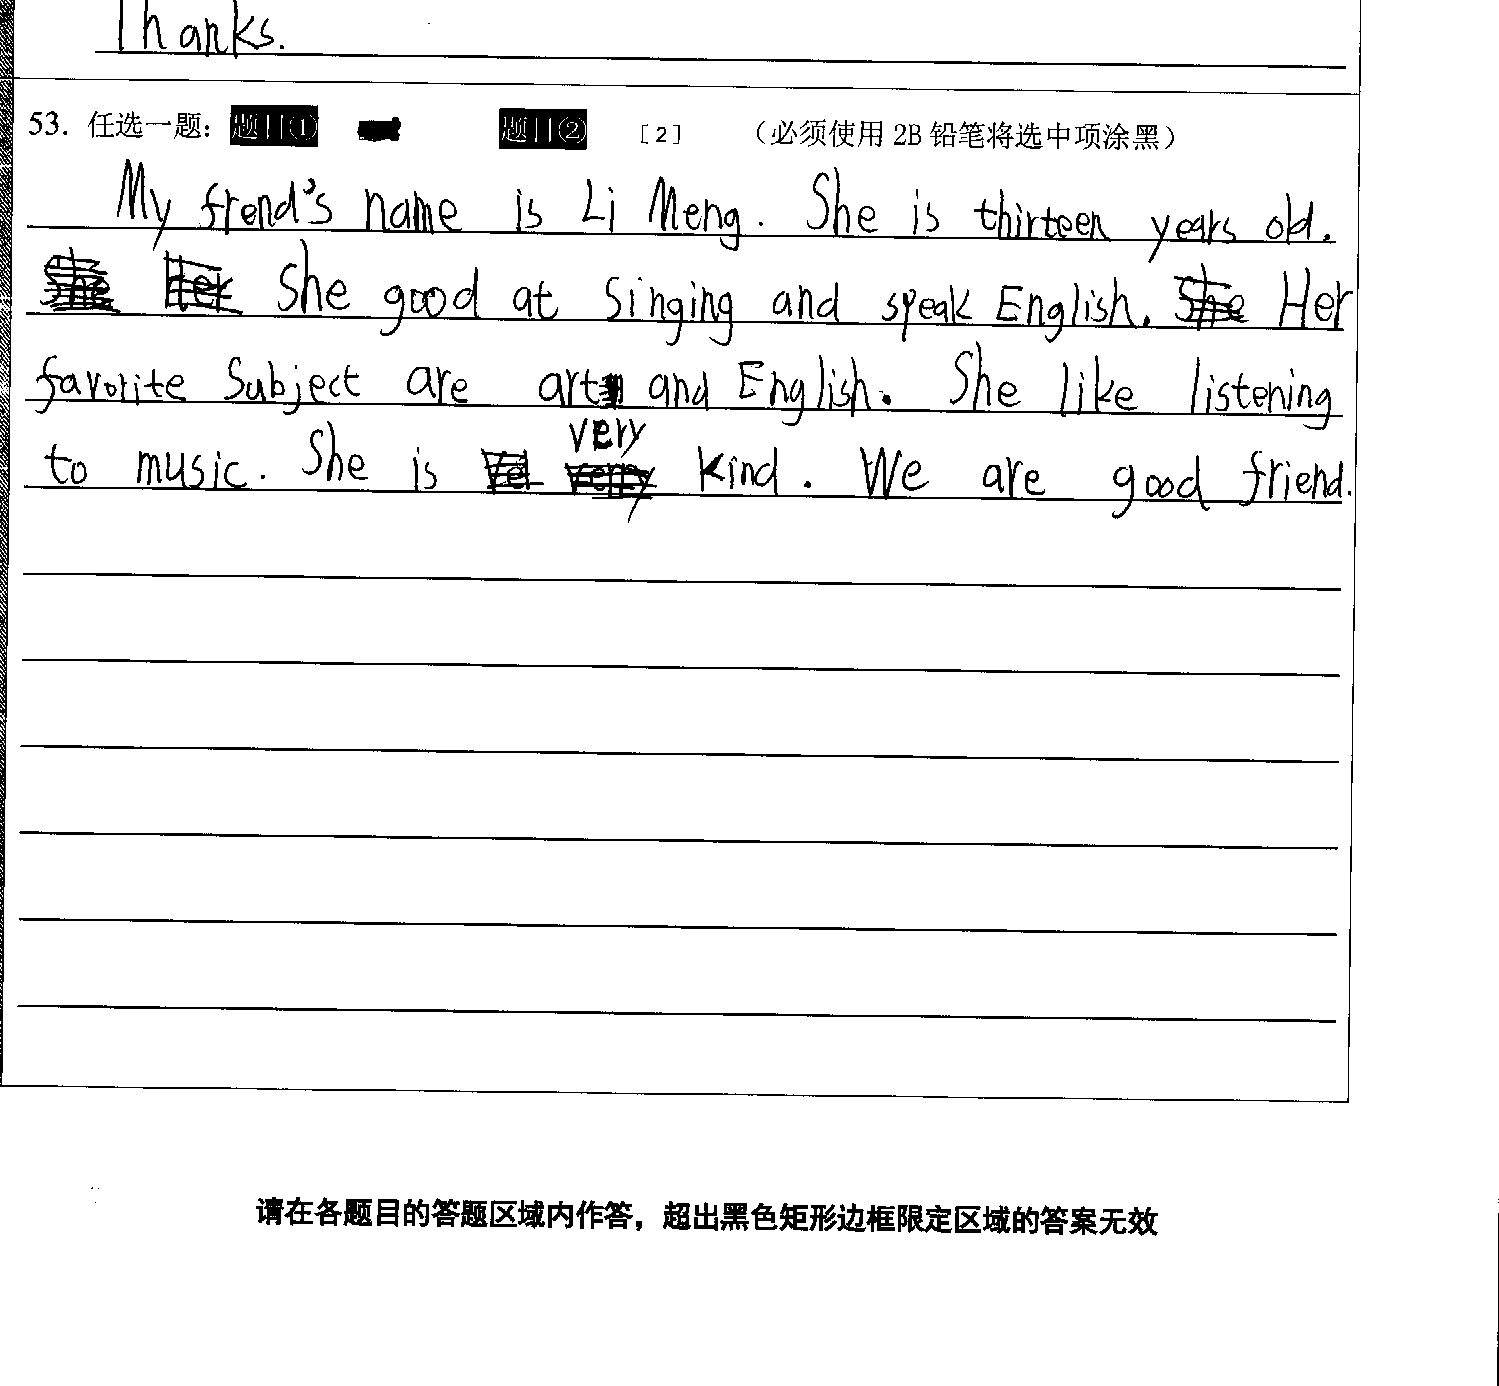 Thanks.
53. 任选一题: 题目① 题目② [2] （必须使用 2B 铅笔将选中项涂黑）
My frend's name is Li Meng. She is thirteen years old.
She Her She good at singing and speak English. She Her
favorite Subject are art and English. She like listening
very
to music. She is kind. We are good friend.
请在各题目的答题区域内作答，超出黑色矩形边框限定区域的答案无效